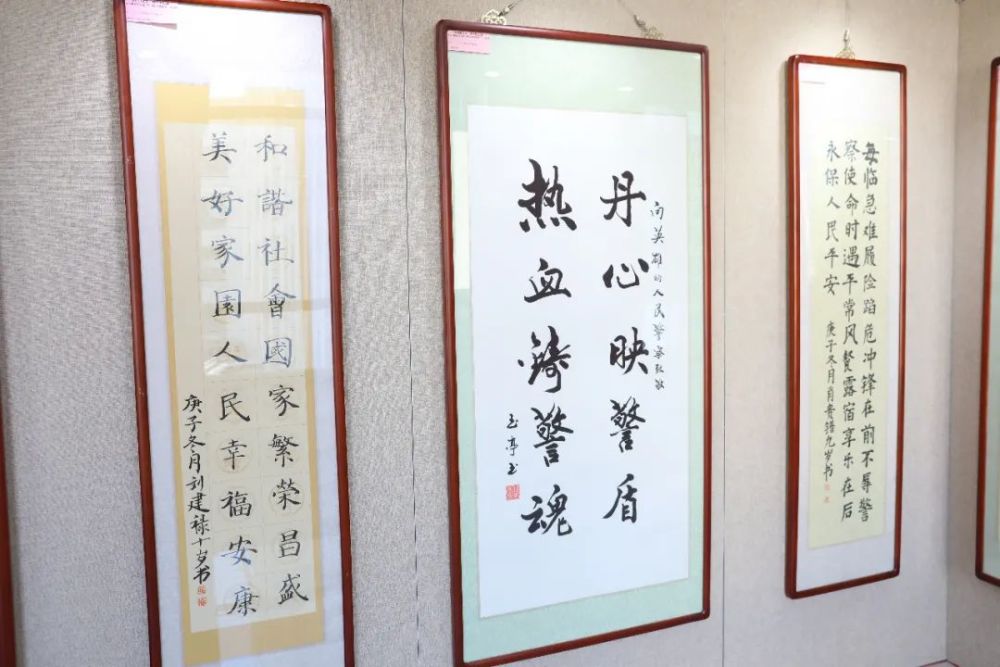 和諧社會國家繁荣昌盛
美好家園人民幸福安康
庚子冬月刘建禄十岁书
向英雄的人民警察致敬
丹心映警盾
热血鑄警魂
玉亭书
每临急难履险蹈危冲锋在前不辱警
察使命时遇平常风餐露宿享乐在后
永保人民平安
庚子冬月肖贵九岁书